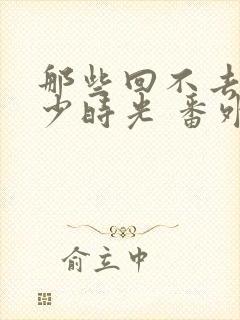 那些回不去
少时光 番外
俞立中